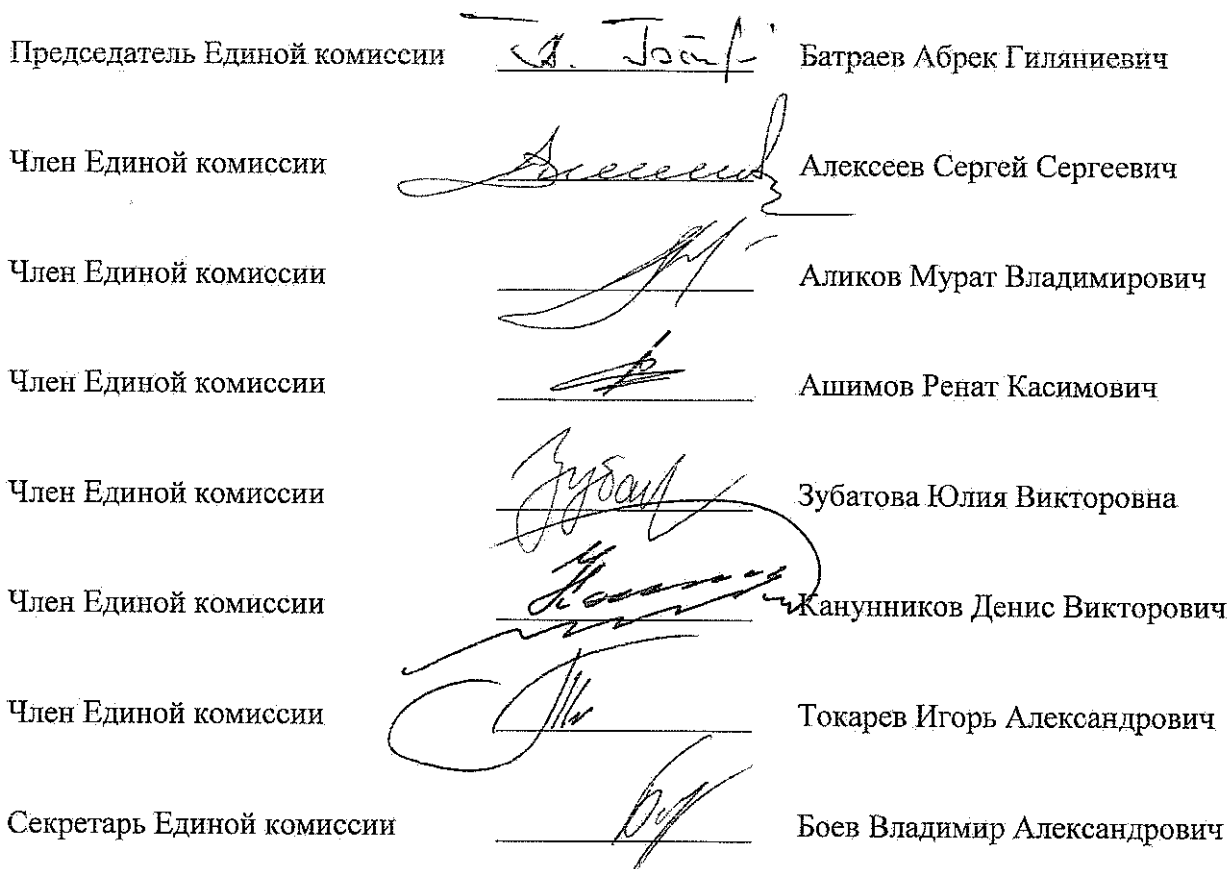 Председатель Единой комиссии Батраев Абрек Гиляниевич
Член Единой комиссии Алексеев Сергей Сергеевич
Член Единой комиссии Аликов Мурат Владимирович
Член Единой комиссии Ашимов Ренат Касимович
Член Единой комиссии Зубатова Юлия Викторовна
Член Единой комиссии Канунников Денис Викторович
Член Единой комиссии Токарев Игорь Александрович
Секретарь Единой комиссии Боев Владимир Александрович